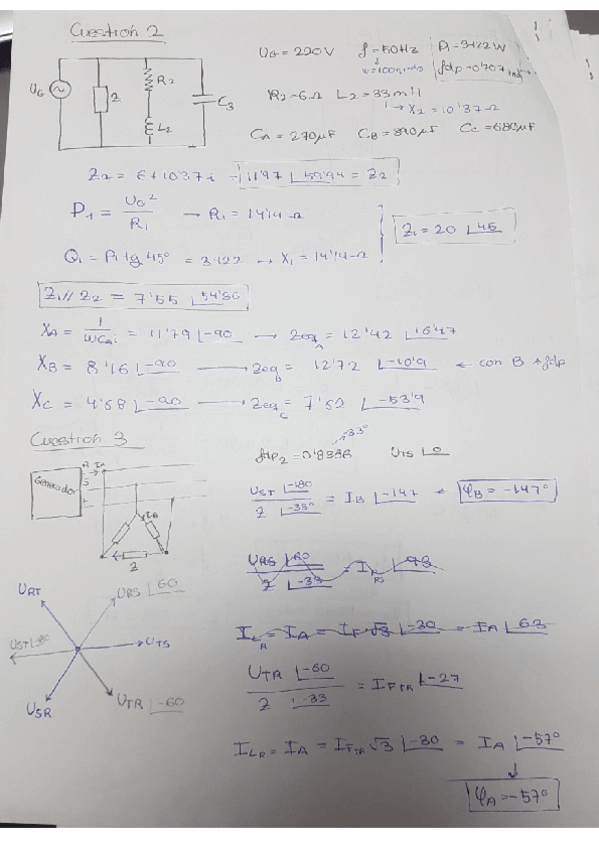 Cuestion 2
UG = 220V f = 50Hz P1 = 3422W
w = 100π rad/s fdp = 0'707 ind
R2 = 6Ω L2 = 33mH
→ X2 = 10'37Ω
UG Z R2 L2 C3
CA = 270μF CB = 390μF CC = 680μF
Z2 = 6 + 10'37i = 11'97 ∟59'94 = Z2
P1 = UG² / R1 → R1 = 14'14Ω
Q1 = P1 tg 45° = 3422 → X1 = 14'14Ω
Z1 = 20 ∟45
Z1 // Z2 = 7'55 ∟54'36
XA = 1 / WCA i = 11'79 ∟-90 → ZeqA = 12'42 ∟16'47
XB = 8'16 ∟-90 → ZeqB = 12'72 ∟-10'9 ← con B ↑fdp
XC = 4'58 ∟-90 → ZeqC = 7'52 ∟-53'9
Cuestion 3
fdp2 = 0'8386 → 33° UTS ∟0
Generador R S T IA IB Z
UST ∟-180 / Z ∟-33° = IB ∟-147 φB = -147°
URS ∟60 / Z ∟-33 = IFRS ∟93
URT URS ∟60
UST ∟180 UTS
USR UTR ∟-60
ILR = IA = IF √3 ∟-30 = IA ∟63
UTR ∟-60 / Z ∟-33 = IFTR ∟-27
ILR = IA = IFTR √3 ∟-30 = IA ∟-57°
φA = -57°